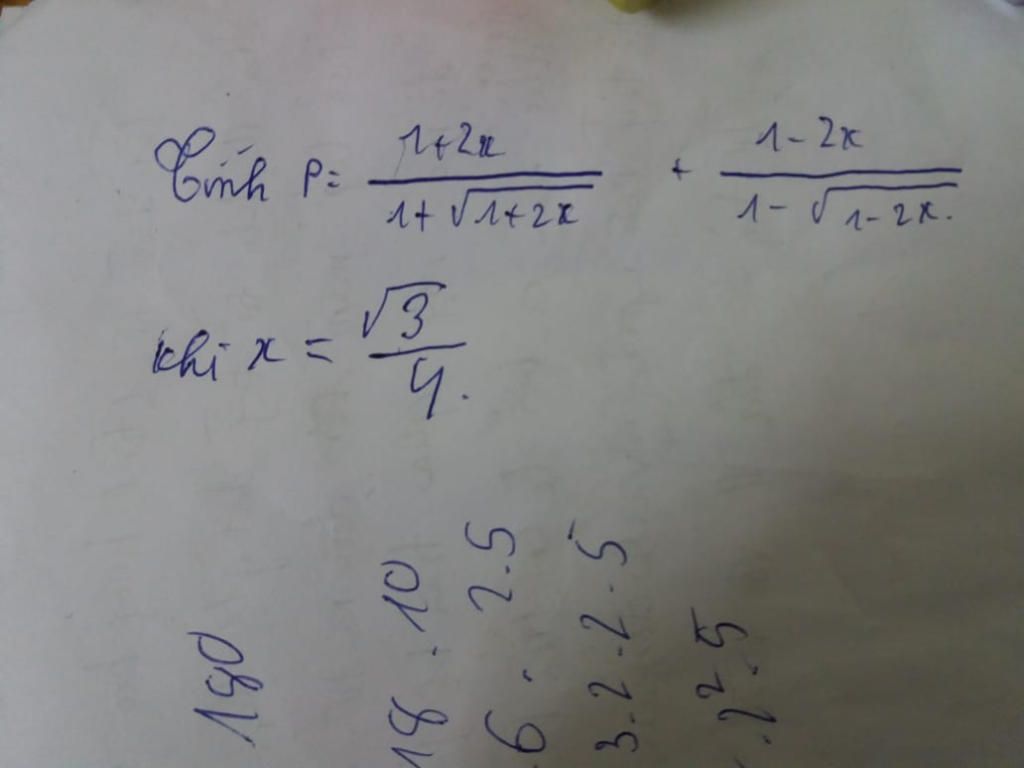 Tính P = \frac{1+2x}{1+\sqrt{1+2x}} + \frac{1-2x}{1-\sqrt{1-2x}}.
khi x = \frac{\sqrt{3}}{4}.
180
18 . 10
6 . 2.5
3.2.2.5
.2².5